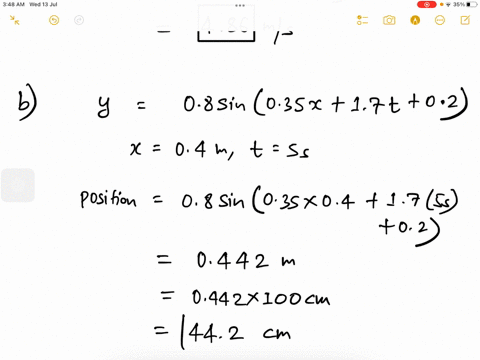 3:46 AM Wed 13 Jul
35%
b) y = 0.8 sin (0.35x + 1.7t + 0.2)
x = 0.4 m, t = 5s
position = 0.8 sin (0.35 × 0.4 + 1.7 (5s)
+ 0.2)
= 0.442 m
= 0.442 × 100 cm
= 44.2 cm